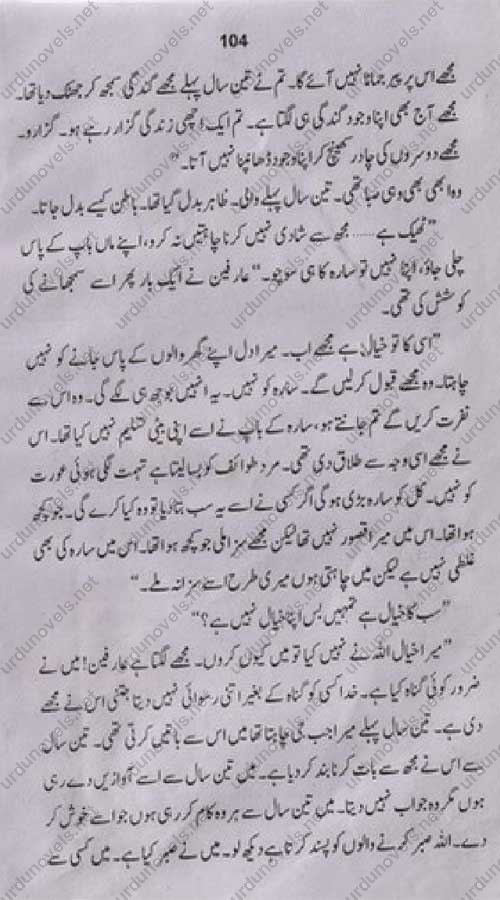 104
مجھے اس پر پیر جمانا نہیں آئے گا۔ تم نے تین سال پہلے مجھے گندگی سمجھ کر جھٹک دیا تھا۔
مجھے آج بھی اپنا وجود گندگی ہی لگتا ہے۔ تم ایک اچھی زندگی گزار رہے ہو۔ گزارو۔
مجھے دوسروں کی چادر کھینچ کر اپنا وجود ڈھانپنا نہیں آتا۔"
وہ ابھی بھی وہی صبا تھی۔ تین سال پہلے والی۔ ظاہر بدل گیا تھا۔ باطن کیسے بدل جاتا۔
"ٹھیک ہے ...... مجھ سے شادی نہیں کرنا چاہتیں نہ کرو، اپنے ماں باپ کے پاس
چلی جاؤ، اپنا نہیں تو سارہ کا ہی سوچو۔" عارفین نے ایک بار پھر اسے سمجھانے کی
کوشش کی تھی۔
"اسی کا تو خیال ہے مجھے اب۔ میرا دل اپنے گھر والوں کے پاس جانے کو نہیں
چاہتا۔ وہ مجھے قبول کرلیں گے۔ سارہ کو نہیں۔ یہ انہیں بوجھ ہی لگے گی۔ وہ اس سے
نفرت کریں گے تم جانتے ہو، سارہ کے باپ نے اسے اپنی بیٹی تسلیم نہیں کیا تھا۔ اس
نے مجھے اسی وجہ سے طلاق دی تھی۔ مرد طوائف کو بسا لیتا ہے تہمت لگی ہوئی عورت
کو نہیں۔ کل کو سارہ بڑی ہوگی اگر کسی نے اسے یہ سب بتا دیا تو وہ کیا کرے گی۔ جو کچھ
ہوا تھا۔ اس میں میرا قصور نہیں تھا لیکن مجھے سزا ملی جو کچھ ہوا تھا۔ اس میں سارہ کی بھی
غلطی نہیں ہے لیکن میں چاہتی ہوں میری طرح اسے سزا نہ ملے۔"
"سب کا خیال ہے تمہیں بس اپنا خیال نہیں ہے؟"
"میرا خیال اللہ نے نہیں کیا تو میں کیوں کروں۔ مجھے لگتا ہے عارفین! میں نے
ضرور کوئی گناہ کیا ہے۔ خدا کسی کو گناہ کے بغیر اتنی رسوائی نہیں دیتا جتنی اس نے مجھے
دی ہے۔ تین سال پہلے میرا جب جی چاہتا تھا میں اس سے باتیں کرتی تھی۔ تین سال
سے اس نے مجھ سے بات کرنا بند کر دیا ہے۔ میں تین سال سے اسے آوازیں دے رہی
ہوں مگر وہ جواب نہیں دیتا۔ میں تین سال سے ہر وہ کام کر رہی ہوں جو اسے خوش کر
دے۔ اللہ صبر کرنے والوں کو پسند کرتا ہے دیکھ لو۔ میں نے صبر کیا ہے۔ میں کسی سے
urdunovels.net